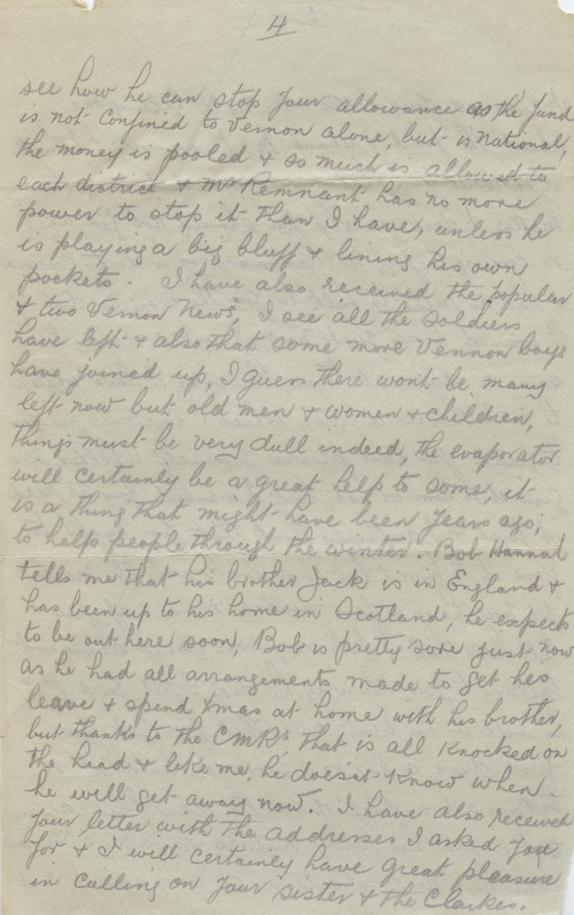 4
see how he can stop your allowance as the fund
is not confined to Vernon alone, but is National,
the money is pooled & so much is allowed to
each district & Mr Remnant has no more
power to stop it than I have, unless he
is playing a big bluff & lining his own
pockets. I have also received the popular
& two Vernon News, I see all the soldiers
have left & also that some more Vernon boys
have joined up, I guess there wont be many
left now but old men & women & children,
things must be very dull indeed, the evaporator
will certainly be a great help to some, it
is a thing that might have been years ago,
to help people through the winter. Bob Hannah
tells me that his brother Jack is in England &
has been up to his home in Scotland, he expects
to be out here soon, Bob is pretty sore just now
as he had all arrangements made to get his
leave & spend Xmas at home with his brother,
but thanks to the CMRs, that is all knocked on
the head & like me, he doesnt know when
he will get away now. I have also received
your letter with the addresses I asked you
for & I will certainly have great pleasure
in calling on your sister & the Clarkes.